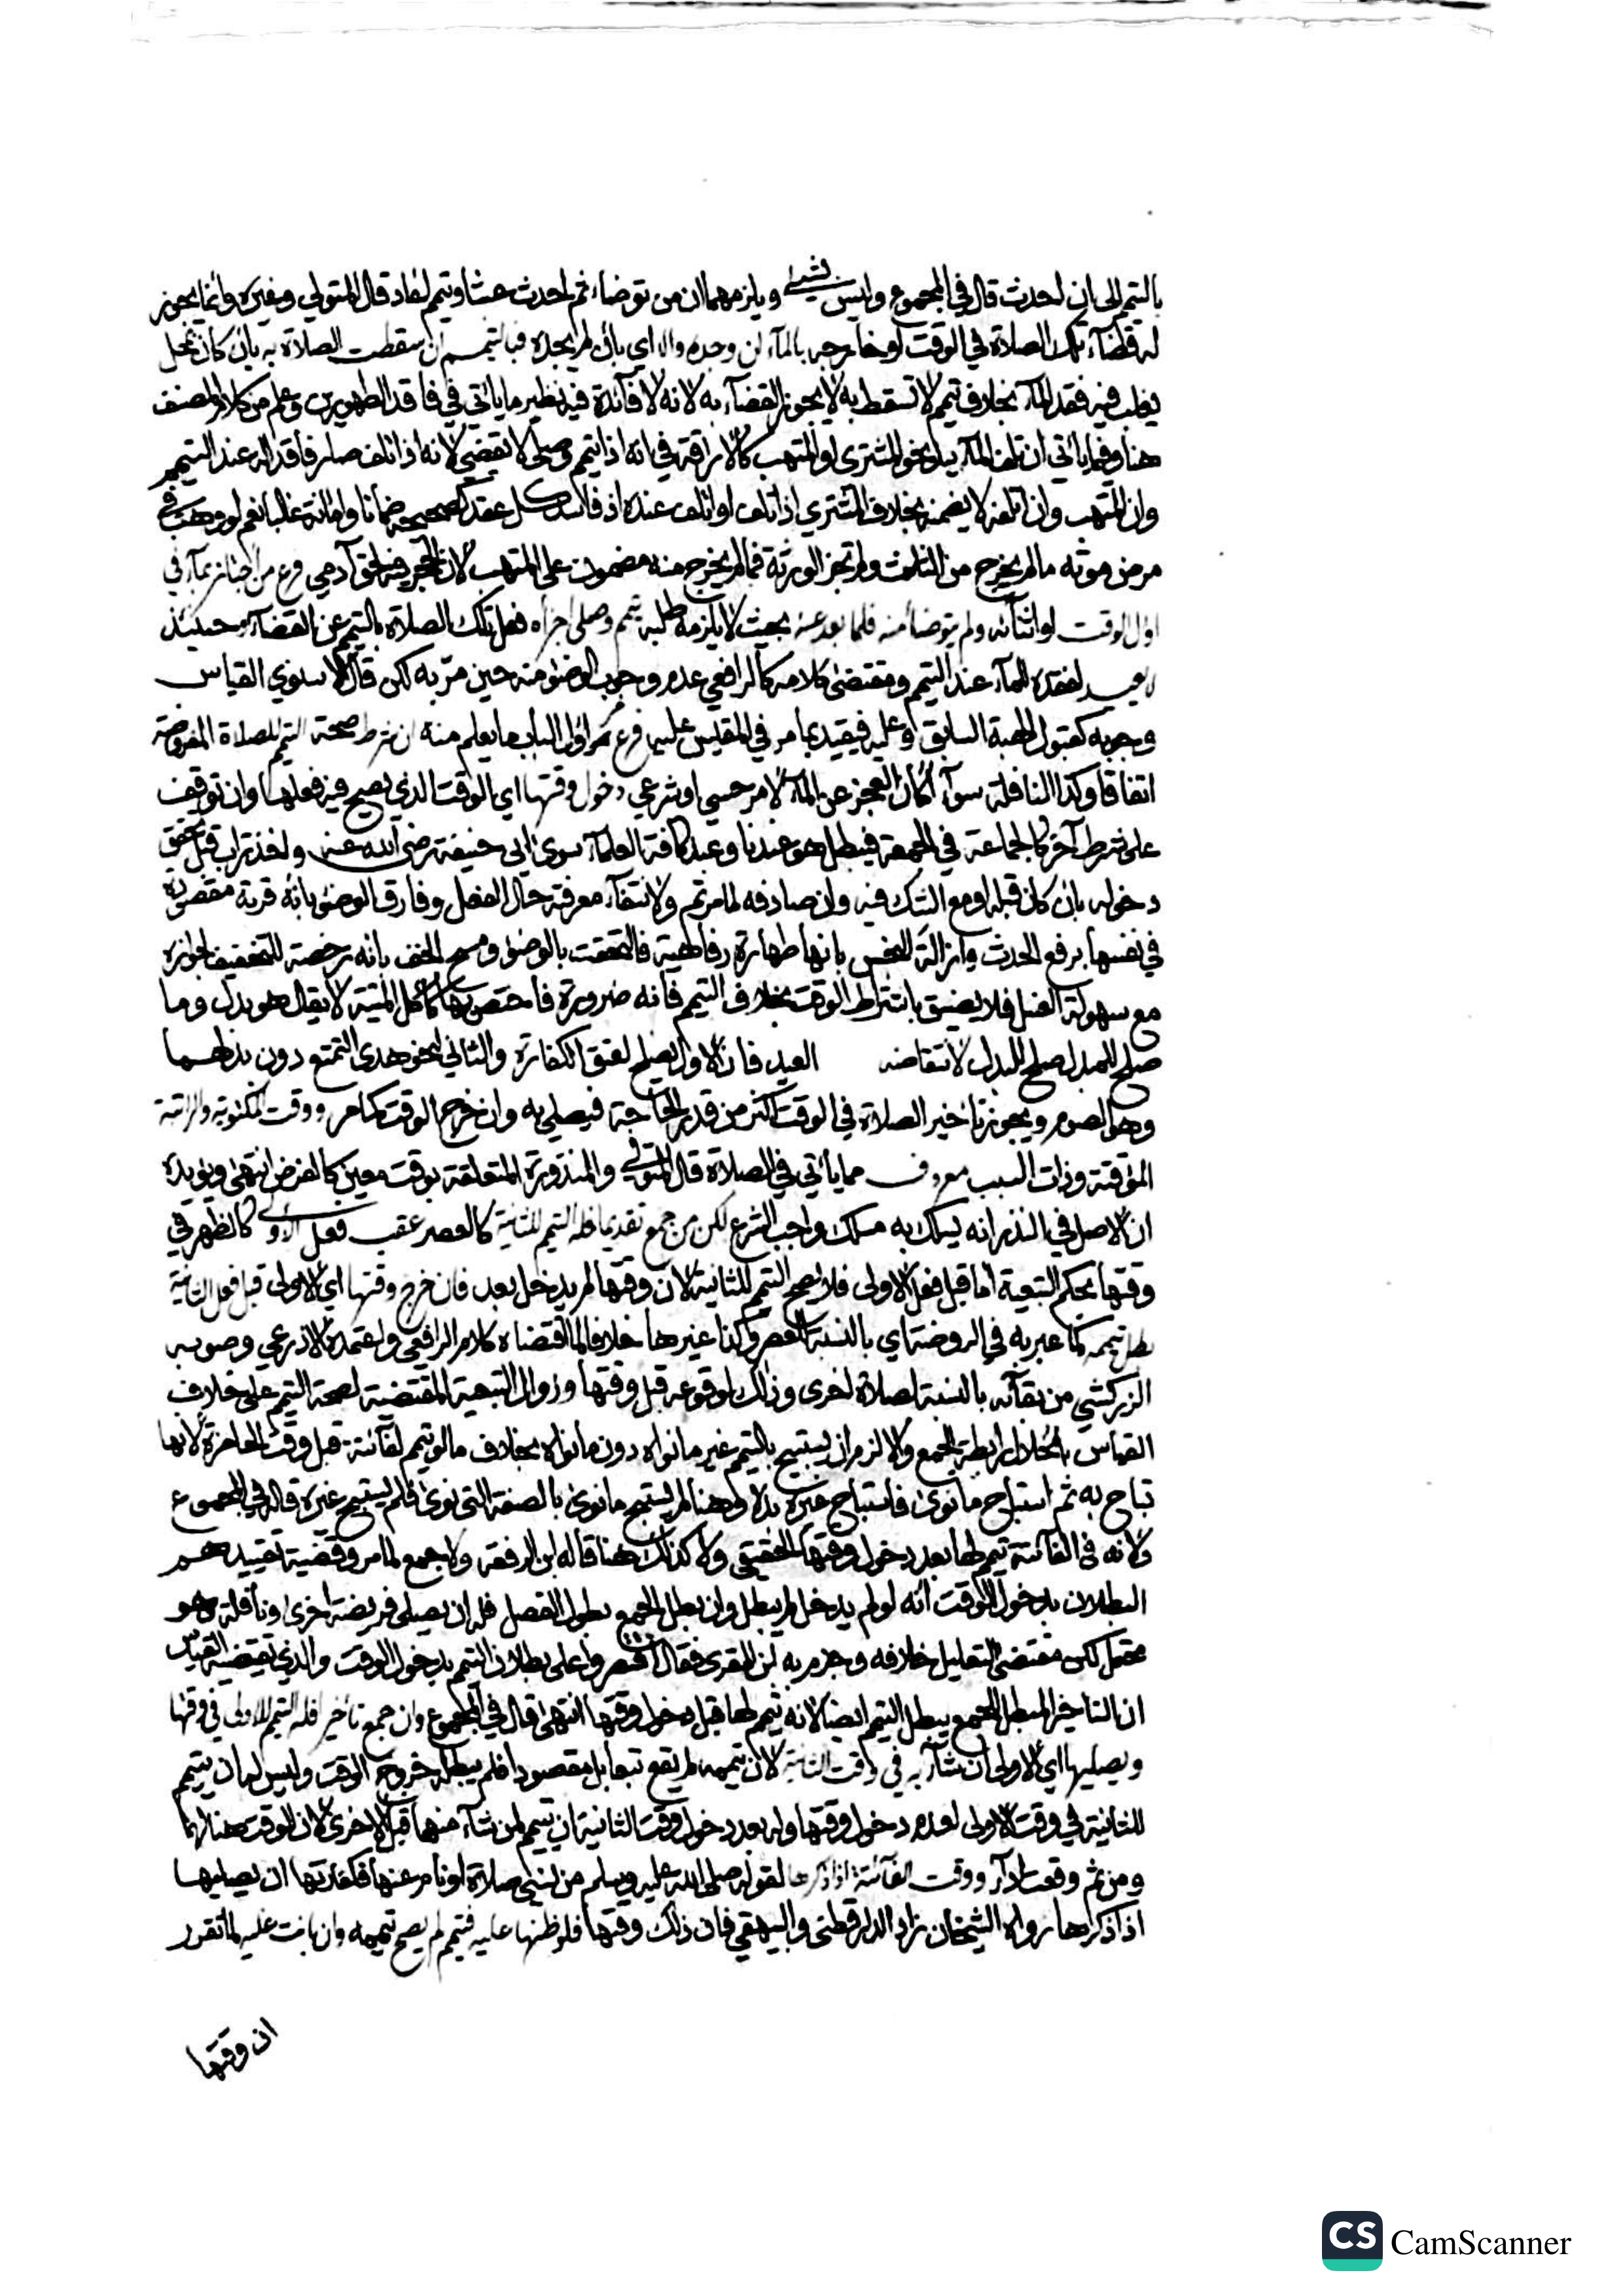 بالتيمم الى ان احدث قال في المجموع وليس بشيء ويلزمهما ان من توضأ ثم احدث عبثا وتيمم اعاد قال المتولي وغيره وانما يجوز
له قضاء تلك الصلاة في الوقت او خارجه بالماء ان وجده والا اي بان لم يجده فبالتيمم ان سقطت الصلاة به بان كان بمحل
يغلب فيه فقد الماء بخلاف تيمم لا تسقط به لا يجوز القضاء به لانه لا فائدة فيه نظير ما ياتي في فاقد الطهورين وعلم من كلام المصنف
هنا وفيما ياتي ان تلف الماء بيد نحو المشتري او المتهب كالاراقة في انه اذا تيمم وصلى لا يقضي لانه اذا تلف صار فاقدا له عند التيمم
وان المتهب وان اتلفه لا يضمنه بخلاف المشتري اذا تلف او اتلف عنده اذ فاسد كل عقد كصحيحه ضمانا وامانة غالبا نعم لو وهب في
مرض موته ما لم يخرج من الثلث ولم تجز الورثة فما لم يخرج منه مضمون على المتهب لان الحجر فيه لحق آدمي فرع من اجتاز بماء في
اول الوقت او اثنائه ولم يتوضأ منه فلما بعد عنه بحيث لا يلزمه طلبه تيمم وصلى اجزأه فعل تلك الصلاة بالتيمم عن القضاء وحينئذ
لا يعيد لفقده الماء عند التيمم ومقتضى كلامه كالرافعي عدم وجوب الوضوء منه حين مر به لكن قال الاسنوي القياس
وجوبه كقبول الهبة السابق وعليه فيقيد بما مر في المقيس عليه فرع مر اول الباب ما يعلم منه ان شرط صحة التيمم للصلاة المفروضة
اتفاقا وكذا النافلة سواء كان العجز عن الماء لامر حسي او شرعي دخول وقتها اي الوقت الذي يصح فيه فعلها وان توقف
على شرط آخر كالجماعة في الجمعة فيبطل هو عندنا وعند كافة العلماء سوى ابي حنيفة رضي الله عنه واخذ تراب قبل تحقق
دخوله بان كان قبله او مع الشك فيه وان صادفه لما مر ثم ولانتفاء معرفة حال الفعل وفارق الوضوء بانه قربة مقصودة
في نفسها برفع الحدث وازالة النجس بانها طهارة رفاهية فالتحقت بالوضوء ومسح الخف بانه رخصة للتخفيف لجوازه
مع سهولة الغسل فلا يضيق باشتراط الوقت بخلاف التيمم فانه ضرورة فاختص بها كاكل الميتة لا يقال هو بدل وما
صلح للمبدل صلح للبدل لانتقاضه العيد فان الاول يصلح لعتق الكفارة والثاني لنحو هدي التمتع دون بدلهما
وهو الصوم ويجوز تاخير الصلاة في الوقت اكثر من قدر الحاجة فيصلي به وان خرج الوقت كما مر ووقت المكتوبة والراتبة
المؤقتة وذات السبب معروف مما ياتي في الصلاة قال المتولي والمنذورة المتعلقة بوقت معين كالفرض انتهى ويؤيده
ان الاصل في النذر انه يسلك به مسلك واجب الشرع لكن من جمع تقديما فله التيمم للثانية كالعصر عقب فعل الاولى كالظهر في
وقتها بحكم التبعية اما قبل فعل الاولى فلا يصح التيمم للثانية لان وقتها لم يدخل بعد فان خرج وقتها اي الاولى قبل فعل الثانية
بطل تيممه كما عبر به في الروضة اي بالنسبة للعصر وكذا غيرها خلافا لما اقتضاه كلام الرافعي واعتمده الاذرعي وصوبه
الزركشي من بقائه بالنسبة لصلاة اخرى وذلك لوقوعه قبل وقتها وزوال التبعية المقتضية لصحة التيمم على خلاف
القياس بانحلال رابطة الجمع والا لزم ان يستبيح بالتيمم غير ما نواه دون ما نواه بخلاف ما لو تيمم لفائتة قبل وقت الحاضرة لانها
تباح به ثم استباح ما نوى فاستباح غيره بدلا وهنا لم يستبح ما نوى بالصفة التي نوى فلم يستبح غيره قاله في المجموع
ولانه في الفائتة تيمم لها بعد دخول وقتها الحقيقي ولا كذلك هنا قاله ابن الرفعة ولا جمع لما مر وقضية تقييدهم
البطلان بدخول الوقت انه لو لم يدخل لم يبطل وان بطل الجمع بطول الفصل فله ان يصلي فريضة اخرى او نافلة وهو
محتمل لكن مقتضى التعليل خلافه وجزم به ابن المقري فقال اقتصروا على بطلان التيمم بدخول الوقت والذي يقتضيه القياس
ان التاخير المبطل للجمع يبطل التيمم ايضا لانه تيمم لها قبل دخول وقتها انتهى قال في المجموع وان جمع تاخيرا فله التيمم للاولى في وقتها
ويصليها اي الاولى ان شاء به في وقت الثانية لان تيممه لم يقع تبعا بل مقصودا فلم يبطله خروج الوقت وليس له ان يتيمم
للثانية في وقت الاولى لعدم دخول وقتها وله بعد دخول وقت الثانية ان يتيمم لمن شاء منهما قبل الاخرى لان الوقت هنا لهما
ومن ثم وقعت اداء ووقت الفائتة اذا ذكرها لقوله صلى الله عليه وسلم من نسي صلاة او نام عنها فكفارتها ان يصليها
اذا ذكرها رواه الشيخان زاد الدارقطني والبيهقي فان ذلك وقتها فلو ظنها عليه فتيمم لم يصح تيممه وان بانت عليه لما تقرر
ان وقتها
CS CamScanner